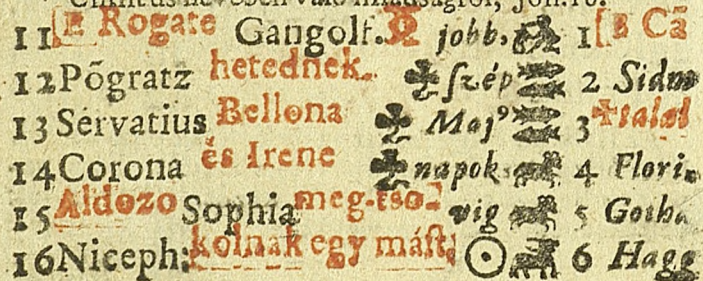 11 E Rogate Gangolf. jobb, 1 B Cã
12 Põgratz hetednek. ♣ szép 2 Sidm
13 Servatius Bellona ♣ Maj° 3
14 Corona és Irene ♣ napok 4 Flori
15 Aldozo Sophia meg-tso- vig 5 Goth
16 Niceph: kolnak egy mást; ☉ 6 Hagg